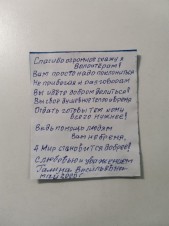 Спасибо огромное скажу я
Волонтёрам!
Вам просто надо поклониться
Не привыкла я разговорам
Вы идёте добром делиться!
Вы своё душевное тепло и время
Отдать готовы тем кому
всего нужнее!
Ведь помощь людям
вам не бремя,
А Мир становится добрее!
С любовью и уважением
Галина Васильевна